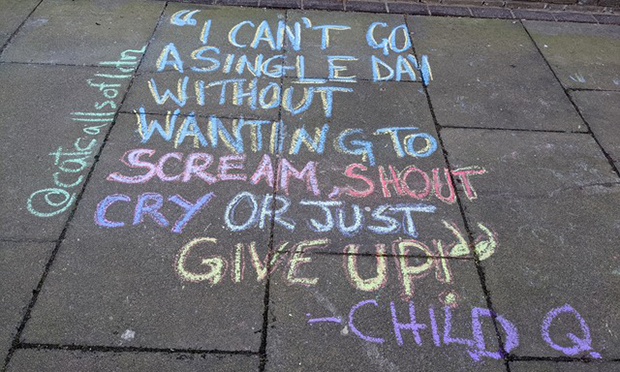 "I CAN'T GO
A SINGLE DAY
WITHOUT
WANTING TO
SCREAM, SHOUT
CRY OR JUST
GIVE UP!"
-CHILD Q.
@catcallsofldn